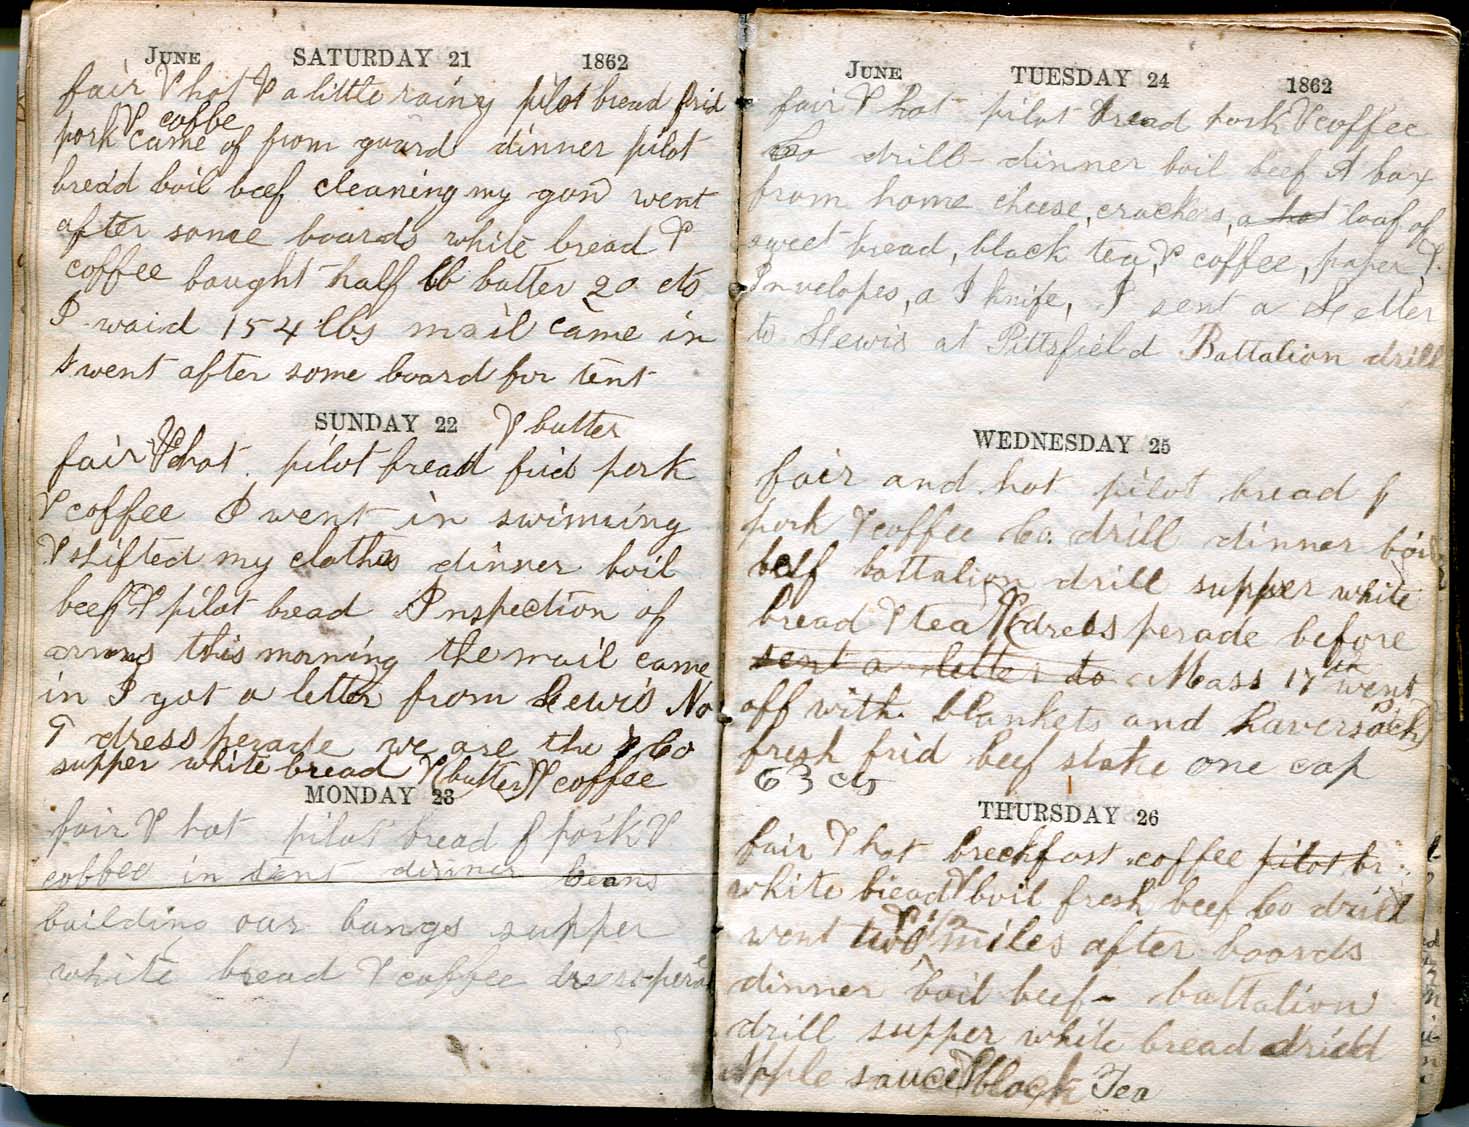 June SATURDAY 21 1862
fair & hot & a little rainy pilot bread frid
& coffe
pork came of from guard dinner pilot
bread boil beef cleaning my gun went
after some boards white bread &
coffee bought half lb butter 20 cts
I waid 154 lbs mail came in
I went after some board for tent
SUNDAY 22 & butter
fair & hot. pilot bread frid pork
& coffee I went in swimming
& shifted my clothes dinner boil
beef & pilot bread Inspection of
arms this morning the mail came
in I got a letter from Lewis No
9 dress perade we are the Co
supper white bread & (butter) & coffee
MONDAY 23
fair & hot pilot bread f pork &
coffee in tent dinner beans
building our bungs supper
white bread & coffee dress pera
June TUESDAY 24 1862
fair & hot pilot bread pork & coffee
Co drill dinner boil beef A box
from home cheese, crackers, a hot loaf of
sweet bread, black tea, & coffee, paper &
Invelopes, a I knife, I sent a Letter
to Lewis at Pittsfield Battalion drill
WEDNESDAY 25
fair and hot pilot bread f
pork & coffee Co. drill dinner boil
beef battalion drill supper white
bread & tea & (dress perade before
sent a letter to Mass 17th went
off with blankets and haversack)
fresh frid beef stake one cap
63 cts
THURSDAY 26
fair & hot breckfast coffee pilot br
white bread & boil fresh beef Co drill
went two & 1/2 miles after boards
dinner boil beef - battalion
drill supper white bread dried
Apple sauce & black Tea